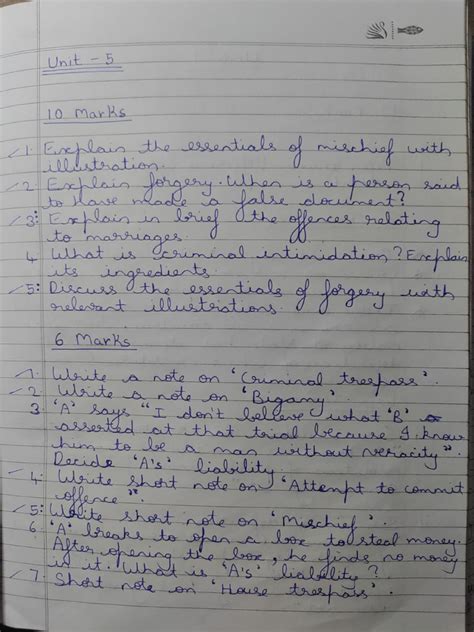 Unit - 5
10 Marks
1. Explain the essentials of mischief with
illustration.
2. Explain forgery. When is a person said
to have made a false document?
3. Explain in brief the offences relating
to marriages.
4. What is criminal intimidation? Explain
its ingredients.
5. Discuss the essentials of forgery with
relevant illustrations.
6 Marks
1. Write a note on 'Criminal trespass'.
2. Write a note on 'Bigamy'.
3. 'A' says "I don't believe what 'B'
asserted at that trial because I know
him to be a man without veracity".
Decide 'A's' liability.
4. Write short note on 'Attempt to commit
offence'.
5. Write short note on 'Mischief'.
6. 'A' breaks to open a box to steal money.
After opening the box, he finds no money
in it. What is 'A's' liability?
7. Short note on 'House trespass'.